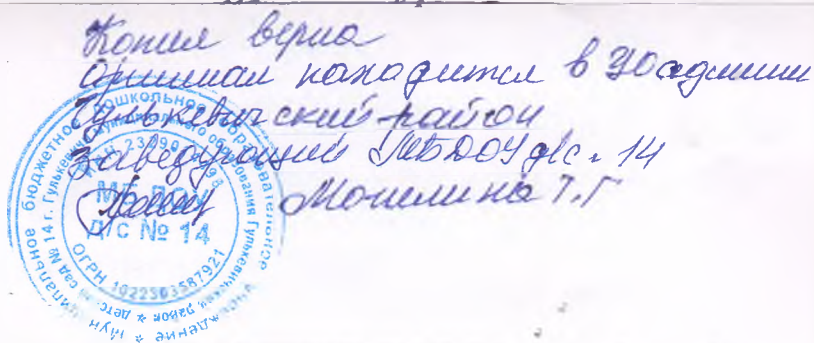 Копия верна
Оригинал находится в УО админи
Гулькевичский район
Заведующий МБДОУ д/с № 14
Мошлина Т.Г
МБДОУ
Д/С № 14
ОГРН 1022303587921